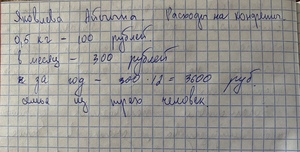 Яковлева Расходы на конфеты.
0,5 кг – 100 рублей
в месяц – 300 рублей
за год – 300 · 12 = 3600 руб.
семья из трёх человек